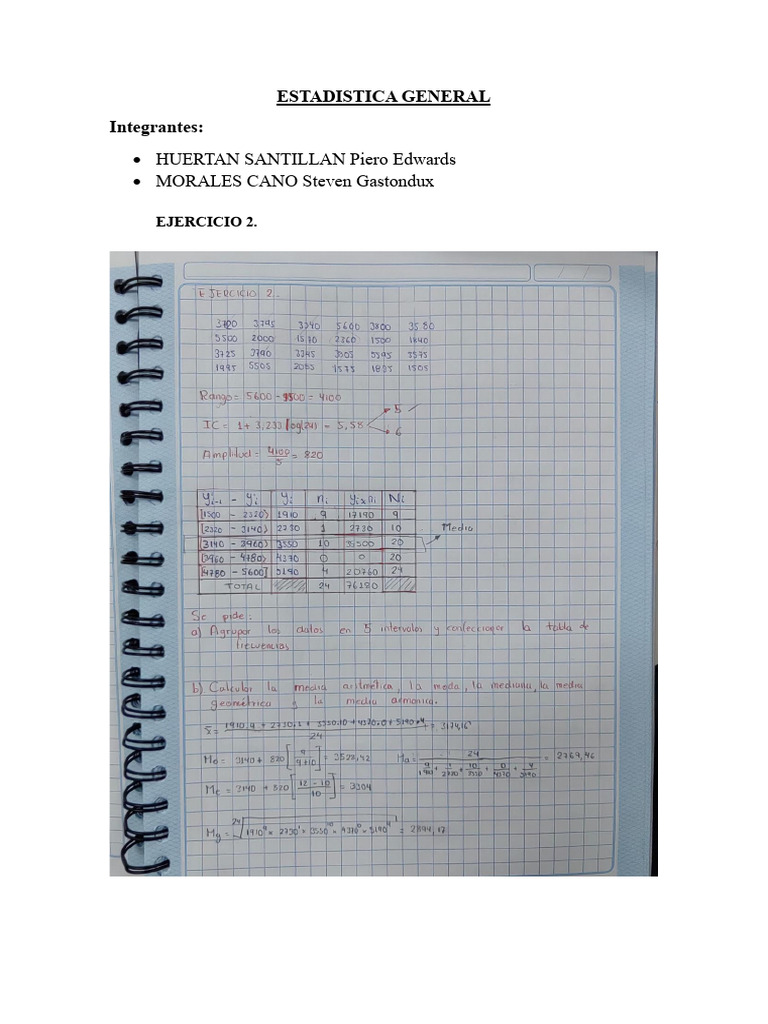 ESTADISTICA GENERAL
Integrantes:
• HUERTAN SANTILLAN Piero Edwards
• MORALES CANO Steven Gastondux
EJERCICIO 2.
EJERCICIO 2.-
3720 3795 3340 5600 3800 35.80
5500 2000 1570 2360 1500 1840
3725 3790 3345 3505 5595 3575
1995 5505 2055 1575 1835 1505
Rango = 5600 - 1500 = 4100
IC = 1 + 3,233 log(24) = 5,58
5
6
Amplitud = 4100/5 = 820
yi-1 - yi yi ni yi x ni Ni
[1500 - 2320) 1910 9 17190 9
[2320 - 3140) 2730 1 2730 10
[3140 - 3960) 3550 10 35500 20
[3960 - 4780) 4370 0 0 20
[4780 - 5600] 5190 4 20760 24
TOTAL 24 76180
Se pide:
a) Agrupar los datos en 5 intervalos y confeccionar la tabla de
frecuencias
b) Calcular la media aritmética, la moda, la mediana, la media
geométrica y la media armonica.
x̄ = 1910.9 + 2730.1 + 3550.10 + 4370.0 + 5190.4 / 24 = 3174,16
Mo = 3140 + 820 [9 / 9+10] = 3528,42
Ma = 24 / 9/1910 + 1/2730 + 10/3550 + 0/4370 + 4/5190 = 2769,46
Me = 3140 + 820 [12 - 10 / 10] = 3304
Mg = 24√1910⁹ x 2730¹ x 3550¹⁰ x 4370⁰ x 5190⁴ = 2894,17